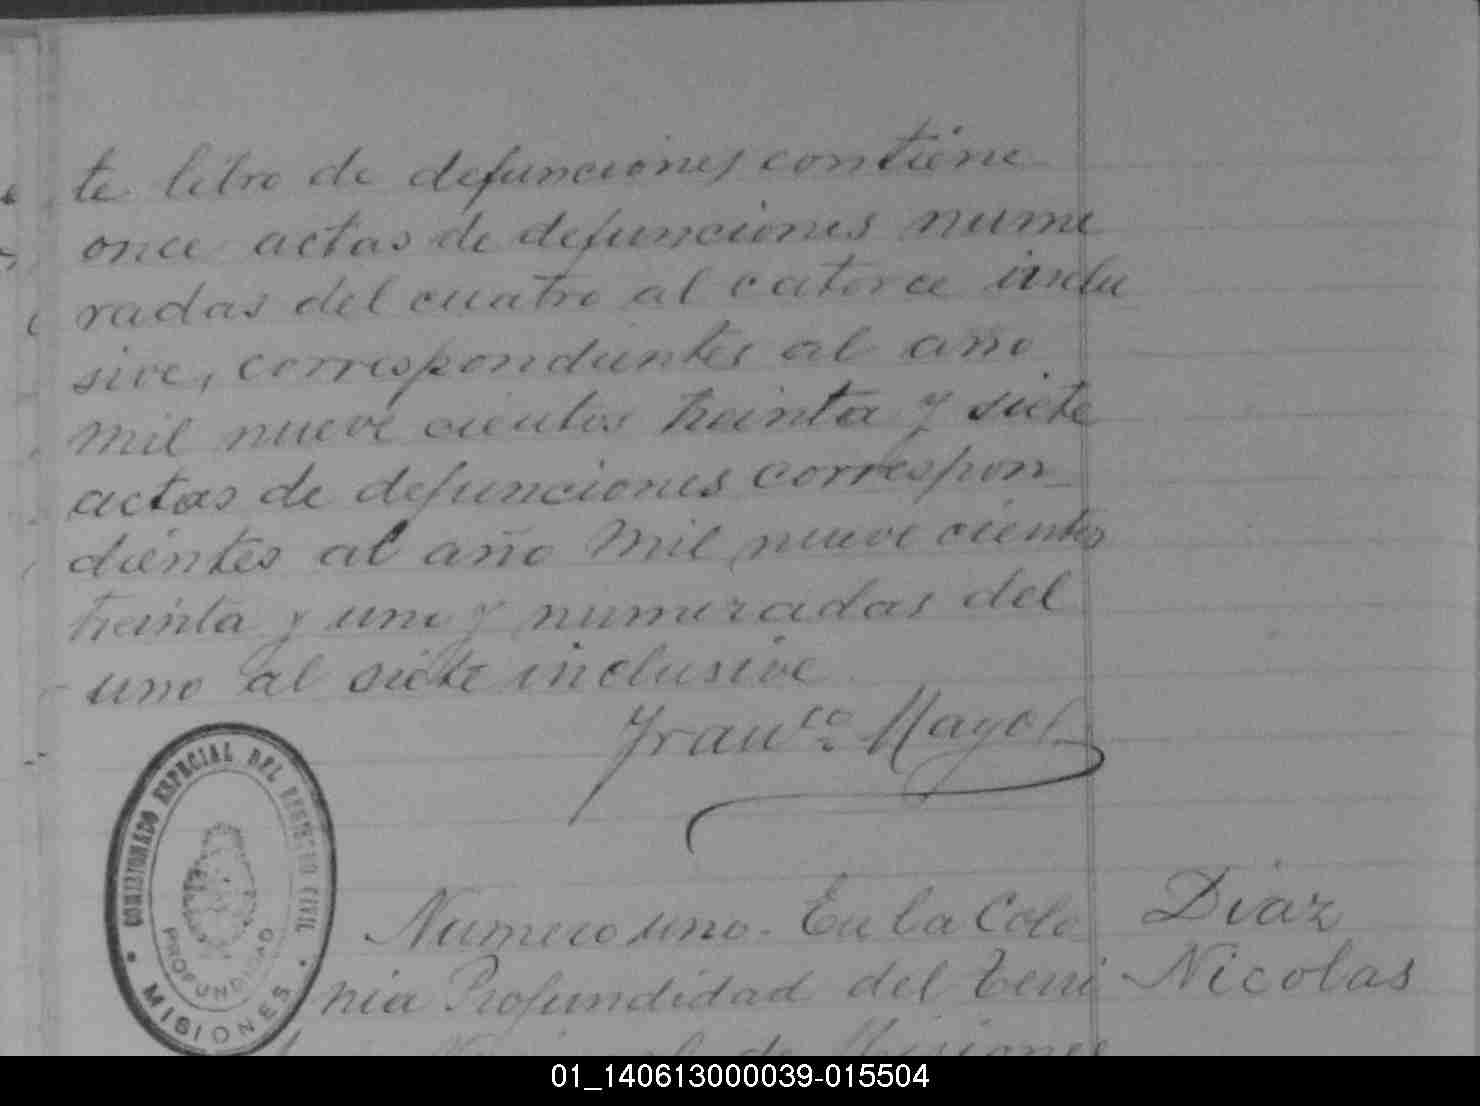 te libro de defunciones contiene
once actas de defunciones nume
radas del cuatro al catorce inclu
sive, correspondientes al año
mil nueve cientos treinta y siete
actas de defunciones correspon_
dientes al año mil nueve cientos
treinta y uno y numeradas del
uno al siete inclusive
Franco Mayol
COMISIONADO ESPECIAL DEL REGISTRO CIVIL
PROFUNDIDAD
MISIONES
Numero uno. En la Colo
nia Profundidad del Terri
Diaz
Nicolas
de Misiones
01_140613000039-015504